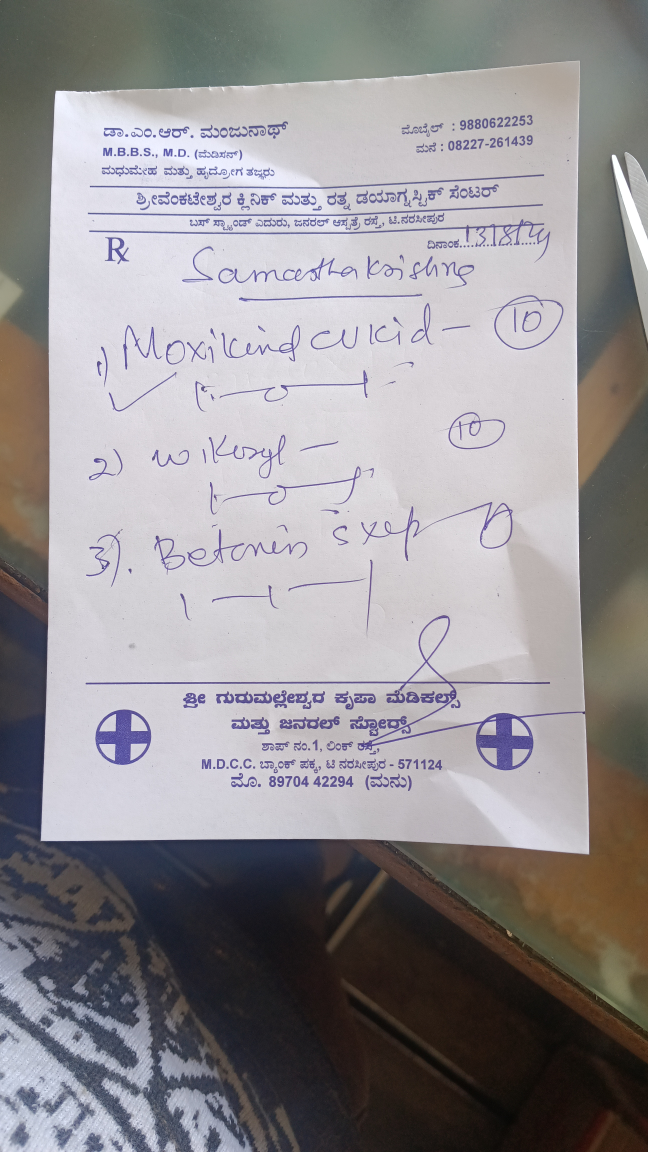 ಡಾ.ಎಂ.ಆರ್. ಮಂಜುನಾಥ್
M.B.B.S., M.D. (ಮೆಡಿಸನ್)
ಮಧುಮೇಹ ಮತ್ತು ಹೃದ್ರೋಗ ತಜ್ಞರು
ಮೊಬೈಲ್ : 9880622253
ಮನೆ : 08227-261439
ಶ್ರೀವೆಂಕಟೇಶ್ವರ ಕ್ಲಿನಿಕ್ ಮತ್ತು ರತ್ನ ಡಯಾಗ್ನಸ್ಟಿಕ್ ಸೆಂಟರ್
ಬಸ್ ಸ್ಟ್ಯಾಂಡ್ ಎದುರು, ಜನರಲ್ ಆಸ್ಪತ್ರೆ ರಸ್ತೆ, ಟಿ.ನರಸೀಪುರ
ದಿನಾಂಕ 13/8/24
Rx
Samarthakrishna
1) Moxikind cv kid – 10
2) – 10
3).
ಶ್ರೀ ಗುರುಮಲ್ಲೇಶ್ವರ ಕೃಪಾ ಮೆಡಿಕಲ್ಸ್
ಮತ್ತು ಜನರಲ್ ಸ್ಟೋರ್ಸ್
ಶಾಪ್ ನಂ.1, ಲಿಂಕ್ ರಸ್ತೆ,
M.D.C.C. ಬ್ಯಾಂಕ್ ಪಕ್ಕ, ಟಿ ನರಸೀಪುರ - 571124
ಮೊ. 89704 42294 (ಮನು)